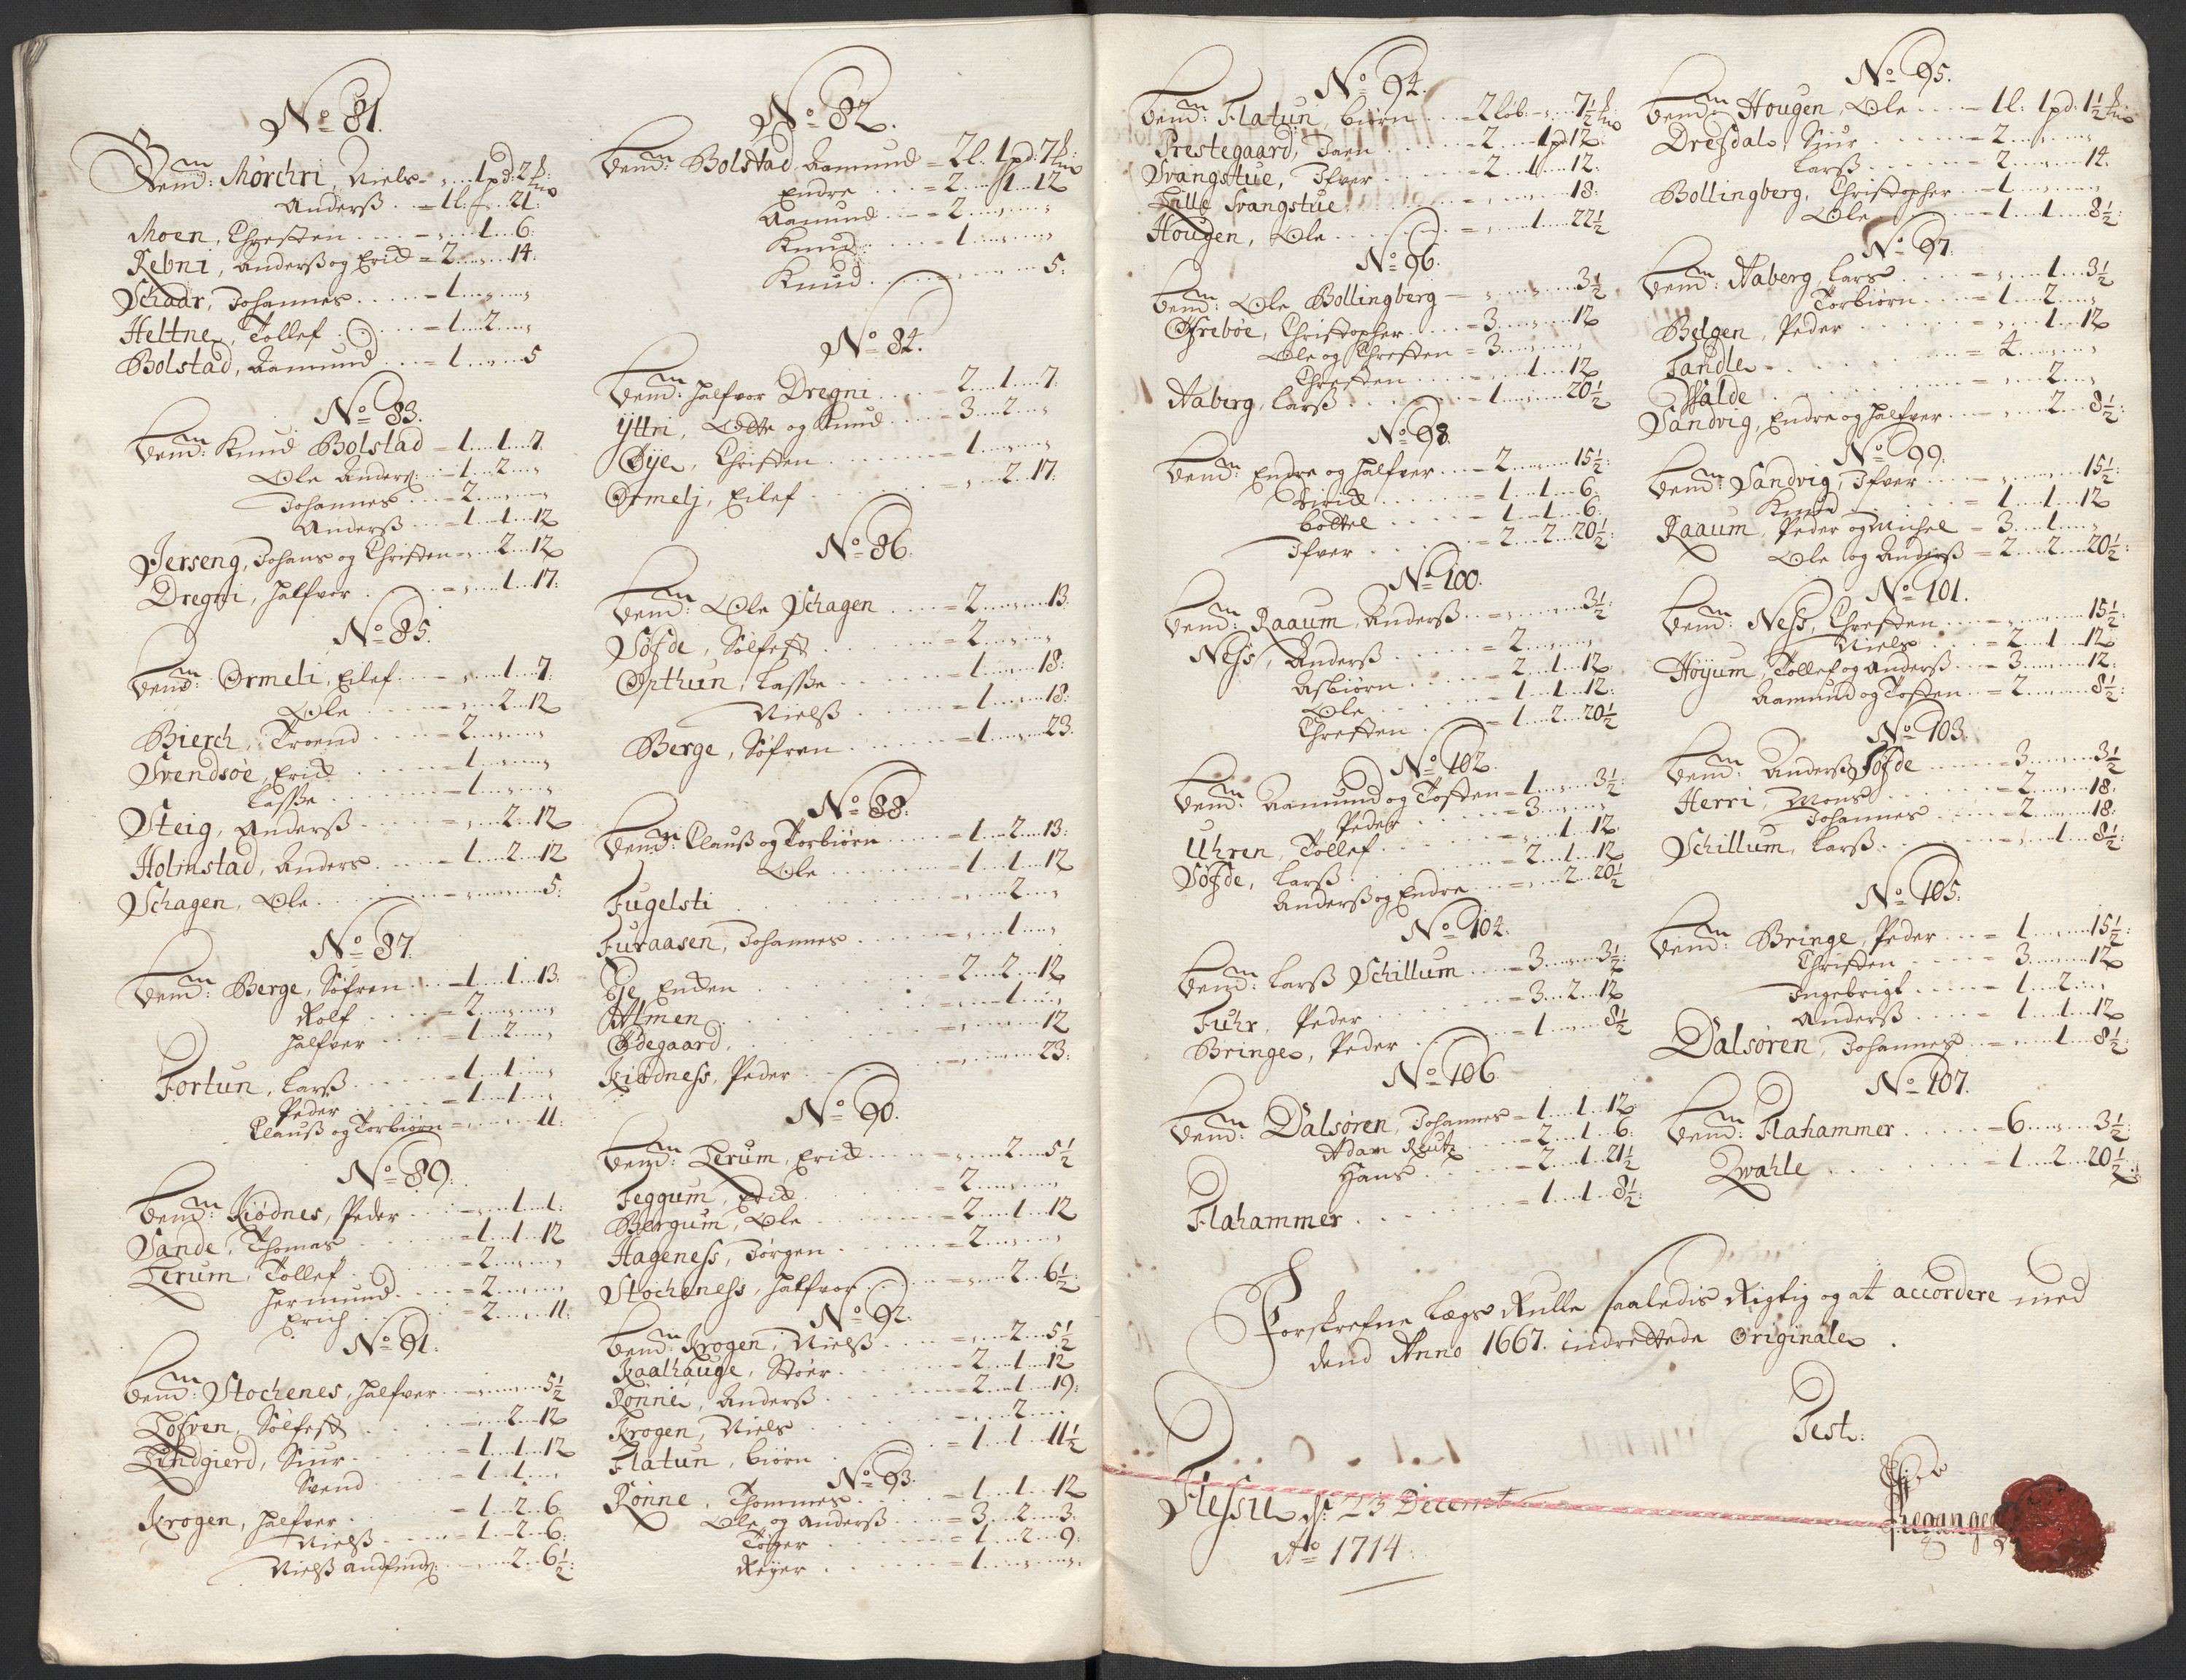 No 81.
Bemt: Mørchri, Niels - „ 1 pd: 2 ...
Anderss .. = 1 l: „ 21:
Moen, Christen .... = „ 1 .. 6:
Rebni, Anderss og Erick = 2 .. „ .. 14:
Schaar, Johannes ..... = 1 .. „ .. „
Heltne, Tollef ..... = 1 .. 2 .. „
Bolstad, Aamund ... = 1 .. „ .. 5
No 83.
Bemt: Knud Bolstad = 1 .. 1 .. 7
Ole Anders: = 1 .. 2 .. „
Johannes ... = 2 .. „ .. „
Anderss ... = 1 .. 1 .. 12
Jerseng, Johans og Christen = „ .. 2 .. 12
Dregni, Halfvor ..... = „ .. 1 .. 17:
No 85.
Bemt: Ormeli, Eilef .... = „ .. 1 .. 7:
Ole ...... = „ .. 2 .. 12
Bierch, Troend .... = 2 .. „ .. „
Svendsøe, Erick .... = 1 .. „ .. „
Lasse ..... = 1 .. „ .. „
Steig, Anderss ..... = „ .. 2 .. 12
Holmstad, Anders .... = 1 .. 2 .. 12
Schagen, Ole ..... = „ .. „ .. 5:
No 87.
Bemt: Berge, Søfren ... = 1 .. 1 .. 13:
Rolf ..... = 2 .. „ .. „
Halfver .... = 1 .. 2 .. „
Fortun, Larss ..... = 1 .. 1 .. „
Peder ..... = 1 .. 1 .. „
Clauss og Torbiørn = „ .. „ .. 11:
No 89:
Bemt: Kiødnes, Peder .... = „ .. 1 .. 1:
Sande, Thomas ..... = 1 .. 1 .. 12
Lerum, Tollef ..... = 2 .. „ .. „
Hermund ... = 2 .. „ .. „
Erich ..... = 2 .. „ .. 11:
No 91:
Bemt: Stochenes, Halfver = „ .. „ .. 5½
Løfven, Sølfest ..... = „ .. 2 .. 12
Lindgierd, Siur ..... = 1 .. 1 .. 12
Svend ..... = 1 .. 1 .. „
Krogen, Halfver ..... = 1 .. 2 .. 6
Nielss ..... = 1 .. 2 .. 6:
Nielss ... = „ .. 2 .. 6½:
No 82.
Bemt: Bolstad, Aamund = 2 l: 1 pd: 7 ...
Endre .... = 2 .. 1 .. 12
Aamund ... = 2 .. „ .. „
Knud ..... = 1 .. „ .. „
Knud ..... = „ .. „ .. 5:
No 84.
Bemt: Halfvor Dregni .... = 2 .. 1 .. 7:
Yttri, Odte og Knud .... = 3 .. 2 .. „
Øye, Christen ..... = 1 .. „ .. „
Ormelj, Eilef ..... = „ .. 2 .. 17:
No 86.
Bemt: Ole Schagen .... = 2 .. „ .. 13
Søfde, Sølfest ..... = 2 .. „ .. „
Opthun, Lasse ..... = 1 .. „ .. 18:
Nielss ..... = 1 .. „ .. 18:
Berge, Søfren ..... = 1 .. „ .. 23
No 88:
Bemt: Clauss og Torbiørn ... = 1 .. 2 .. 13:
Ole ...... = 1 .. 1 .. 12
Fugelsti ..... = „ .. 2 .. „
Furaasen, Johannes ..... = „ .. 1 .. „
Eje Enden ..... = 2 .. 2 .. 12
Almen ..... = „ .. 1 .. „
Ødegaard ..... = „ .. „ .. 12
Kiødness, Peder ..... = „ .. „ .. 23:
No 90.
Bemt: Lerum, Erick .... = „ .. 2 .. 5½
Feggum, Erick ..... = 2 .. „ .. „
Bergum, Ole ..... = 2 .. 1 .. 12
Hageness, Jørgen ..... = 2 .. „ .. „
Stocheness, Halfvor .... = „ .. 2 .. 6½:
No 92.
Bemt: Krogen, Nielss .... = „ .. 2 .. 5½
Kaalhauge, Støer ..... = 2 .. 1 .. 12
Rønne, Anderss ..... = 2 .. 1 .. 19:
Krogen, Niels ..... = „ .. 2 .. „
Flatun, biørn ..... = 1 .. 1 .. 11½
No 93.
Rønne, Thommes .... = 1 .. 1 .. 12
Ole og Anderss .... = 3 .. 2 .. 3:
Tøger ..... = 1 .. 2 .. 9:
Reyer ..... = 1 .. „ .. „
No 94.
Bemt: Flatun, biørn ... = 2 løb: „ 7½ ...
Prestegaard, Joen ..... = 2 .. 1 pd 12
Svangstue, Ifver ..... = 2 .. 1 .. 12:
Lille Svangstue ..... = „ .. „ .. 18:
Hougen, Ole ..... = „ .. 1 .. 22½
No 96.
Bemt: Ole Bollingberg = „ .. „ .. 3½
Øfrebøe, Christopher .... = 3 .. „ .. 12
Ole og Christen = 3 .. „ .. „
Christen ..... = „ .. 1 .. 12
Aaberg, Larss ..... = 1 .. „ .. 20½
No 98
Bemt: Endre og Halfver ... = 2 .. „ .. 15½:
Dirick ..... = 1 .. 1 .. 6:
Bottel ..... = 1 .. 1 .. 6:
Ifver ..... = 2 .. 2 .. 20½:
No 100.
Bemt: Raaum, Anderss ... = „ .. „ .. 3½:
Ness, Anderss ..... = 2 .. „ .. „
Asbiørn ..... = 2 .. 1 .. 12
Ole ..... = 1 .. 1 .. 12:
Christen ..... = 1 .. 2 .. 20½
No 102.
Bemt: Aamund og Tosten = 1 .. „ .. 3½:
Peder ..... = 3 .. „ .. „
Uhren, Tollef ..... = „ .. 1 .. 12
Søfde, Larss ..... = 2 .. 1 .. 12
Anderss og Endre ... = „ .. 2 .. 20½
No 104:
Bemt: Larss Schillum .... = 3 .. „ .. 3½:
Fuhr, Peder ..... = 3 .. 2 .. 12
Bringe, Peder ..... = 1 .. „ .. 8½
No 106
Bemt: Dalsøren, Johannes = 1 .. 1 .. 12
Adam Reutz .... = 2 .. 1 .. 6:
Hans ..... = 2 .. 1 .. 21½
Flahammer ..... = 1 .. 1 .. 8½:
No 95.
Bemt: Hougen, Ole .... = 1 l: 1 pd: 1½ ...
Dresdal, Siur ..... = 2 .. „ .. „
Larss ..... = 2 .. „ .. 14
Bollingberg, Christopher ... = 1 .. „ .. „
Ole ..... = 1 .. 1 .. 8½:
No 97.
Bemt: Aaberg, Lars .... = „ .. 1 .. 3½
Torbiørn ..... = 1 .. 2 .. „
Belgen, Peder ..... = „ .. 1 .. 12
Tandle ..... = 4 .. „ .. „
Walde ..... = „ .. 2 .. „
Sandvig, Endre og Halfver .... = „ .. 2 .. 8½:
No 99:
Bemt: Sandvig, Ifver ..... = „ .. „ .. 15½:
Knud ..... = 1 .. 1 .. 12
Raaum, Peder og Michel = 3 .. 1 .. „
Ole og Anderss = 2 .. 2 .. 20½:
No 101.
Bemt: Ness, Christen .... = „ .. „ .. 15½:
Niels ..... = 2 .. 1 .. 12
Høyum, Tollef og Anderss .. = 3 .. „ .. 12:
Aamund og Tosten .. = 2 .. „ .. 8½:
No 103.
Bemt: Anderss Søfde ..... = 3 .. „ .. 3½
Herri, Mons ..... = 2 .. „ .. 18:
Johannes ..... = 2 .. „ .. 18:
Schillum, Larss ..... = „ .. 1 .. 8½:
No 105:
Bemt: Bringe, Peder .... = 1 .. „ .. 15½:
Christen ..... = 3 .. „ .. 12
Ingebrigt ..... = 1 .. 2 .. „
Anderss ..... = 1 .. 1 .. 12
Dalsøren, Johannes ... = „ .. 1 .. 8½:
No 107.
Bemt: Flahammer ..... = 6 .. „ .. 3½:
Qvahle ..... = 1 .. 2 .. 20½:
Forskrefne Lægs Rulle saaledis Rigtig og at accordere med
dend Anno 1667. indrettede Originale.
Test:
Flessie d: 23 Decembr
Ao 1714